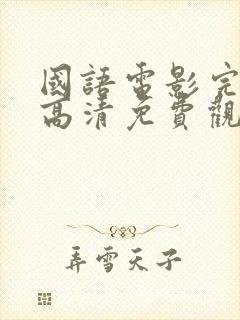 國語電影完
高清免費觀
弄雪天子